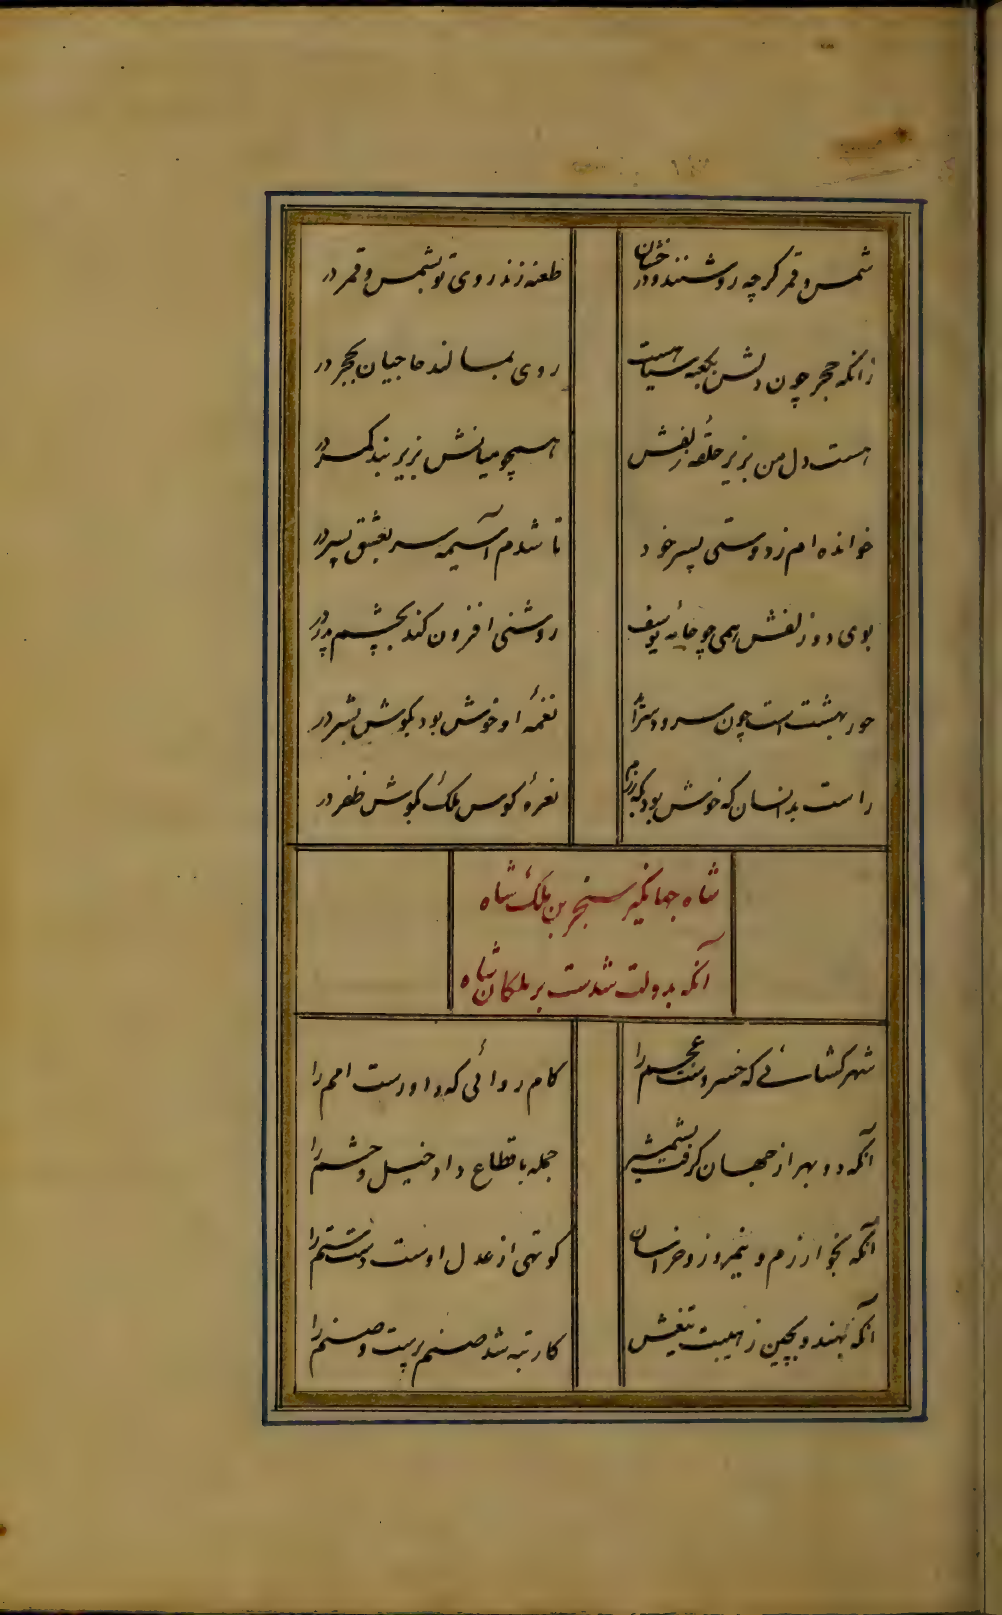 شمس و قمر گرچه روشنند و درخشان
طعنه زند روی تو بشمس و قمر در
زانکه حجر چون دلش بکعبه سیاهست
روی بمالند حاجیان بحجر در
هست دل من بزیر حلقه زلفش
همچو میانش بزیر بند کمر در
خوانده ام ز دوستی پسر خود
تا شدم آسیمه سر بعشق پسر در
بوی دو زلفش همی چو جامه یوسف
روشنی افزون کند بچشم پدر در
حور بهشت است چون سرود سراید
نغمه او خوش بود بگوش بشر در
راست بدانسان که خوش بود بگه رزم
نعره کوس ملک بگوش ظفر در
شاه جهانگیر سنجر بن ملک شاه
آنکه بدولت شدست بر ملکان شاه
شهر گشائی که خسروست عجم را
کام روائی که داورست امم را
آنکه دو بهر از جهان گرفت بشمشیر
جمله باقطاع داد خیل و حشم را
آنکه بخوارزم و نیمروز و خراسان
کوتهی از عدل اوست دست ستم را
آنکه بهند و بچین ز هیبت تیغش
کار تبه شد صنم پرست و صنم را